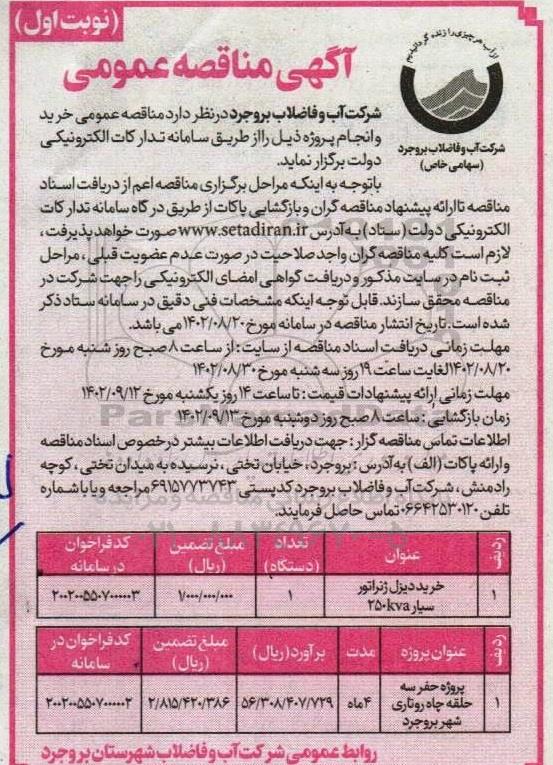 (نوبت اول)
از آب هر چیزی را زنده گردانیدیم
شرکت آب و فاضلاب بروجرد
(سهامی خاص)
آگهی مناقصه عمومی
شرکت آب و فاضلاب بروجرد در نظر دارد مناقصه عمومی خرید
و انجام پروژه ذیل را از طریق سامانه تدارکات الکترونیکی
دولت برگزار نماید.
با توجه به اینکه مراحل برگزاری مناقصه اعم از دریافت اسناد
مناقصه تا ارائه پیشنهاد مناقصه گران و بازگشایی پاکات از طریق درگاه سامانه تدارکات
الکترونیکی دولت (ستاد) به آدرس www.setadiran.ir صورت خواهد پذیرفت،
لازم است کلیه مناقصه گران واجد صلاحیت در صورت عدم عضویت قبلی، مراحل
ثبت نام در سایت مذکور و دریافت گواهی امضای الکترونیکی را جهت شرکت در
مناقصه محقق سازند. قابل توجه اینکه مشخصات فنی دقیق در سامانه ستاد ذکر
شده است. تاریخ انتشار مناقصه در سامانه مورخ ۱۴۰۲/۰۸/۲۰ می باشد.
مهلت زمانی دریافت اسناد مناقصه از سایت: از ساعت ۸ صبح روز شنبه مورخ
۱۴۰۲/۰۸/۲۰ لغایت ساعت ۱۹ روز سه شنبه مورخ ۱۴۰۲/۰۸/۳۰
مهلت زمانی ارائه پیشنهادات قیمت: تا ساعت ۱۴ روز یکشنبه مورخ ۱۴۰۲/۰۹/۱۲
زمان بازگشایی: ساعت ۸ صبح روز دوشنبه مورخ ۱۴۰۲/۰۹/۱۳
اطلاعات تماس مناقصه گزار: جهت دریافت اطلاعات بیشتر درخصوص اسناد مناقصه
و ارائه پاکات (الف) به آدرس: بروجرد، خیابان تختی، نرسیده به میدان تختی، کوچه
رادمنش، شرکت آب و فاضلاب بروجرد کدپستی ۶۹۱۵۷۷۳۷۴۳ مراجعه و یا با شماره
تلفن ۰۶۶۴۲۵۳۰۱۲۰ تماس حاصل فرمایند.
ردیف عنوان تعداد (دستگاه) مبلغ تضمین (ریال) کد فراخوان در سامانه
۱ خرید دیزل ژنراتور سیار ۲۵۰kva ۱ ۱/۰۰۰/۰۰۰/۰۰۰ ۲۰۰۲۰۰۵۵۰۷۰۰۰۰۰۳
ردیف عنوان پروژه مدت برآورد (ریال) مبلغ تضمین (ریال) کد فراخوان در سامانه
۱ پروژه حفر سه حلقه چاه روتاری شهر بروجرد ۴ ماه ۵۶/۳۰۸/۴۰۷/۷۲۹ ۲/۸۱۵/۴۲۰/۳۸۶ ۲۰۰۲۰۰۵۵۰۷۰۰۰۰۰۲
روابط عمومی شرکت آب و فاضلاب شهرستان بروجرد